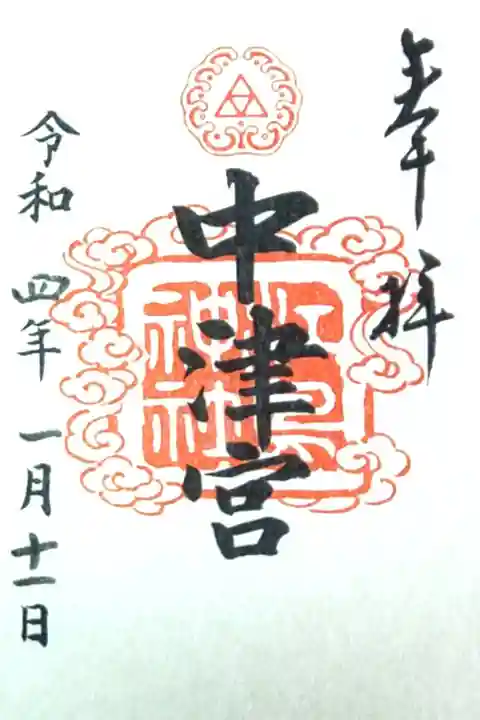 奉拝
中津宮
江島神社
令和四年一月十一日